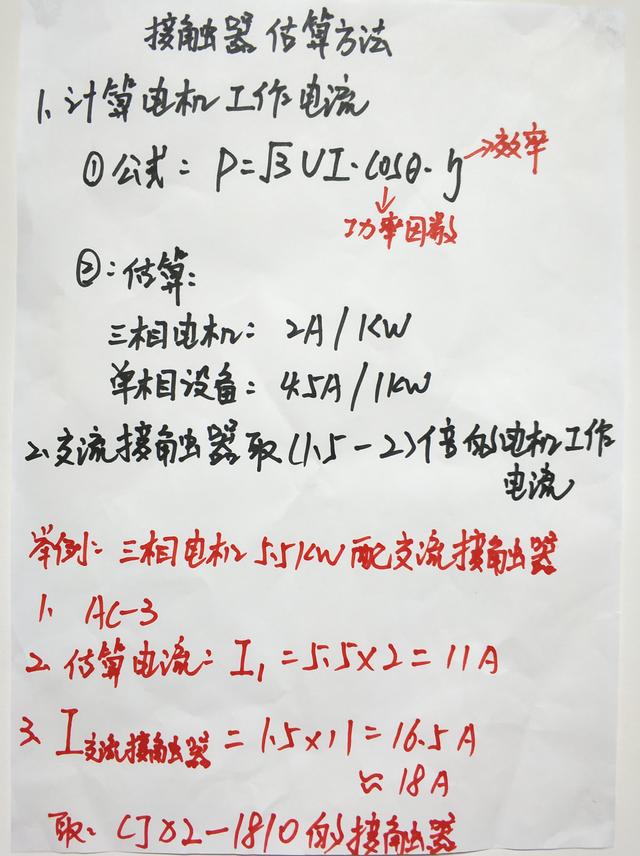 接触器估算方法
1、计算电机工作电流
①公式：P=√3UI·cosθ·η→效率
↓
功率因数
②：估算：
三相电机：2A/1KW
单相设备：4.5A/1KW
2、交流接触器取(1.5-2)倍的电机工作
电流
举例：三相电机5.5KW配交流接触器
1、AC-3
2、估算电流：I1=5.5×2=11A
3、I交流接触器=1.5×11=16.5A
≈18A
取：CJX2-1810的接触器